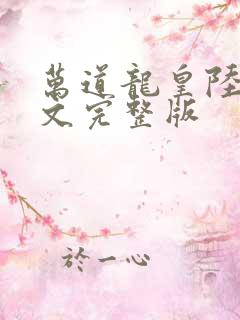 萬道龍皇陸
文完整版
於一心